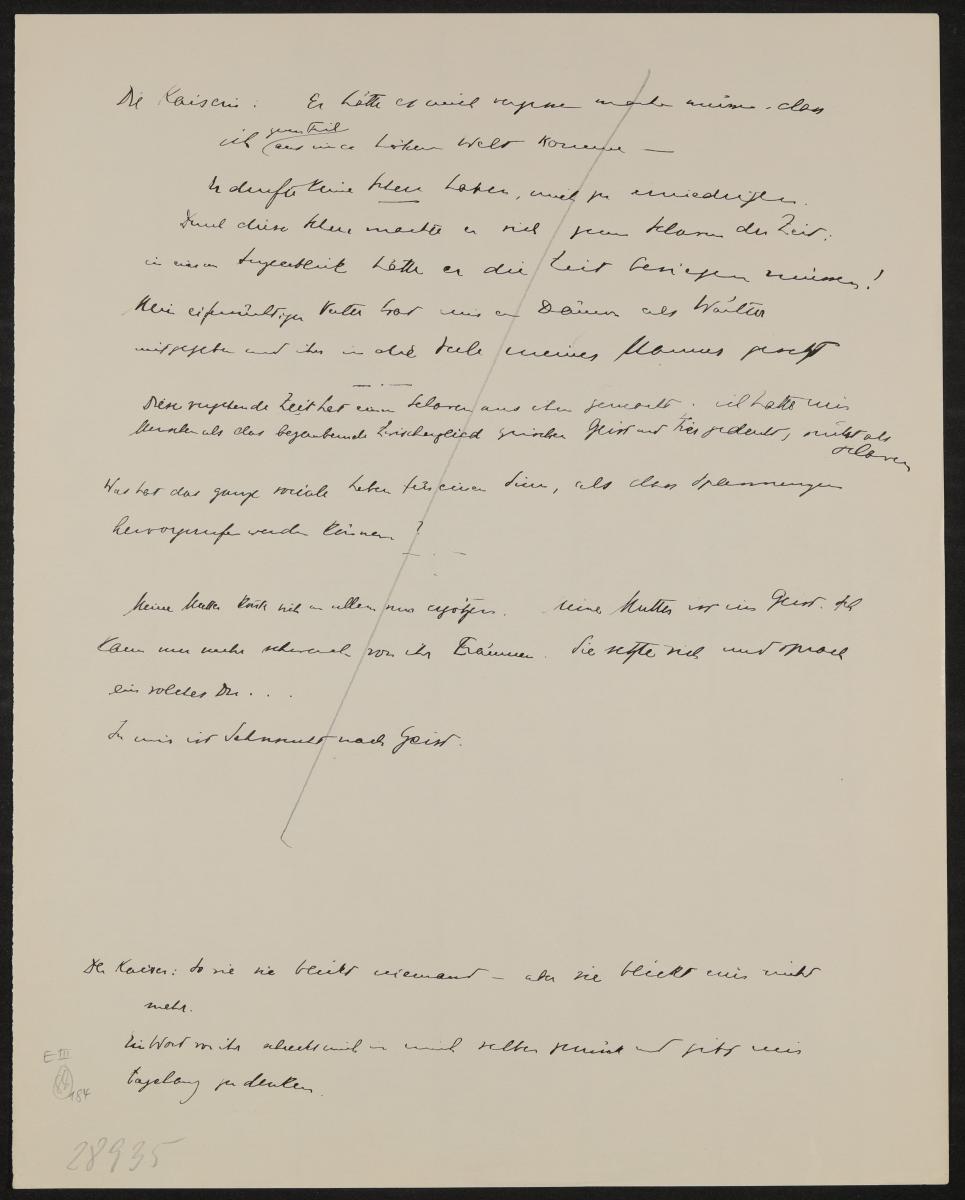 Die Kaiserin: Er hätte es mich vergessen machen müssen, dass
ich aus einer höhern Welt komme —
Er durfte keine Scheu haben, mich zu erniedrigen.
Durch diese Scheu machte er sich zum Sclaven der Zeit:
in einem Augenblick hätte er die Zeit besiegen müssen!
Mein eifersüchtiger Vater hat mir einen Dämon als Wächter
mitgegeben und ihn in die Seele meines Mannes gesetzt
— . —
Diese vergehende Zeit hat einen Sclaven aus ihm gemacht. ich hatte mir
Menschen als das bezaubernde Zwischenglied zwischen Geist und Tier gedacht, nicht als
Sclaven
Was hat das ganze sociale Leben für einen Sinn, als dass Spannungen
hervorgerufen werden können?
— . —
Meine Mutter sich an allem nur ergötzen. Meine Mutter ist im Geist. Ich
kann nur mehr schwach von ihr träumen. Sie setzte sich und sprach
ein solches Du...
In mir ist Sehnsucht nach Geist.
Der Kaiser: So wie sie blickt niemand — aber sie blickt mir nicht
mehr.
Ein Wort von ihr schreckt mich in mich selber zurück und gibt mir
tagelang zu denken.
E III
184
28935